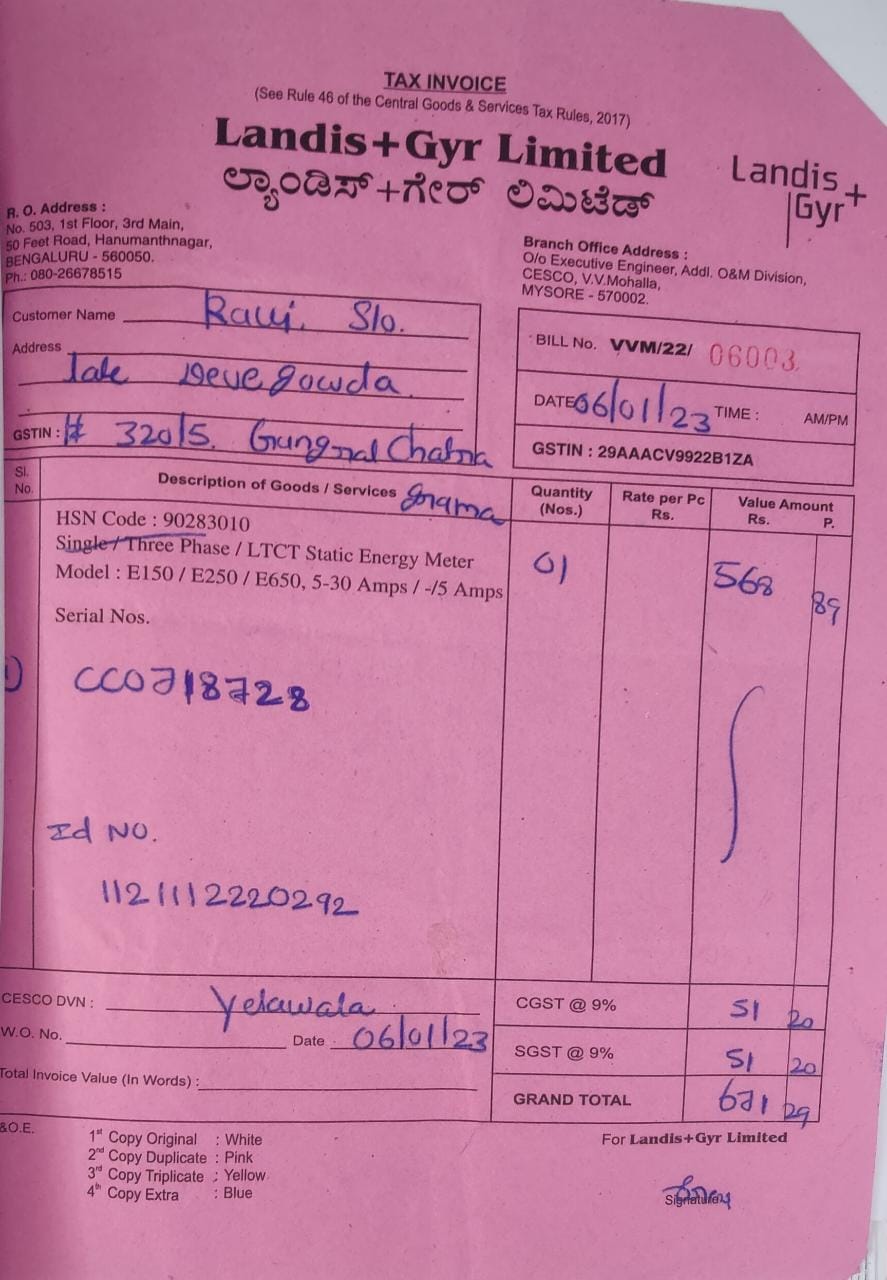 TAX INVOICE
(See Rule 46 of the Central Goods & Services Tax Rules, 2017)
Landis+Gyr Limited
ಲ್ಯಾಂಡಿಸ್+ಗೇರ್ ಲಿಮಿಟೆಡ್
Landis
Gyr+
R. O. Address :
No. 503, 1st Floor, 3rd Main,
50 Feet Road, Hanumanthnagar,
BENGALURU - 560050.
Ph.: 080-26678515
Branch Office Address :
O/o Executive Engineer, Addl. O&M Division,
CESCO, V.V.Mohalla,
MYSORE - 570002.
Customer Name Ravi. S/o.
Address
late Deve gowda
GSTIN : # 320/5.
BILL No. VVM/22/ 06003
DATE 06/01/23 TIME : AM/PM
GSTIN : 29AAACV9922B1ZA
Sl. No. Description of Goods / Services grama Quantity (Nos.) Rate per Pc Rs. Value Amount Rs. P.
HSN Code : 90283010
Single / Three Phase / LTCT Static Energy Meter 01 568 89
Model : E150 / E250 / E650, 5-30 Amps / -/5 Amps
Serial Nos.
1) CC0718728
Id NO.
1121112220292
CESCO DVN : Yelawala
W.O. No. Date 06/01/23
Total Invoice Value (In Words) :
CGST @ 9% 51 20
SGST @ 9% 51 20
GRAND TOTAL 671 29
&O.E.
1st Copy Original : White
2nd Copy Duplicate : Pink
3rd Copy Triplicate : Yellow
4th Copy Extra : Blue
For Landis+Gyr Limited
Signature